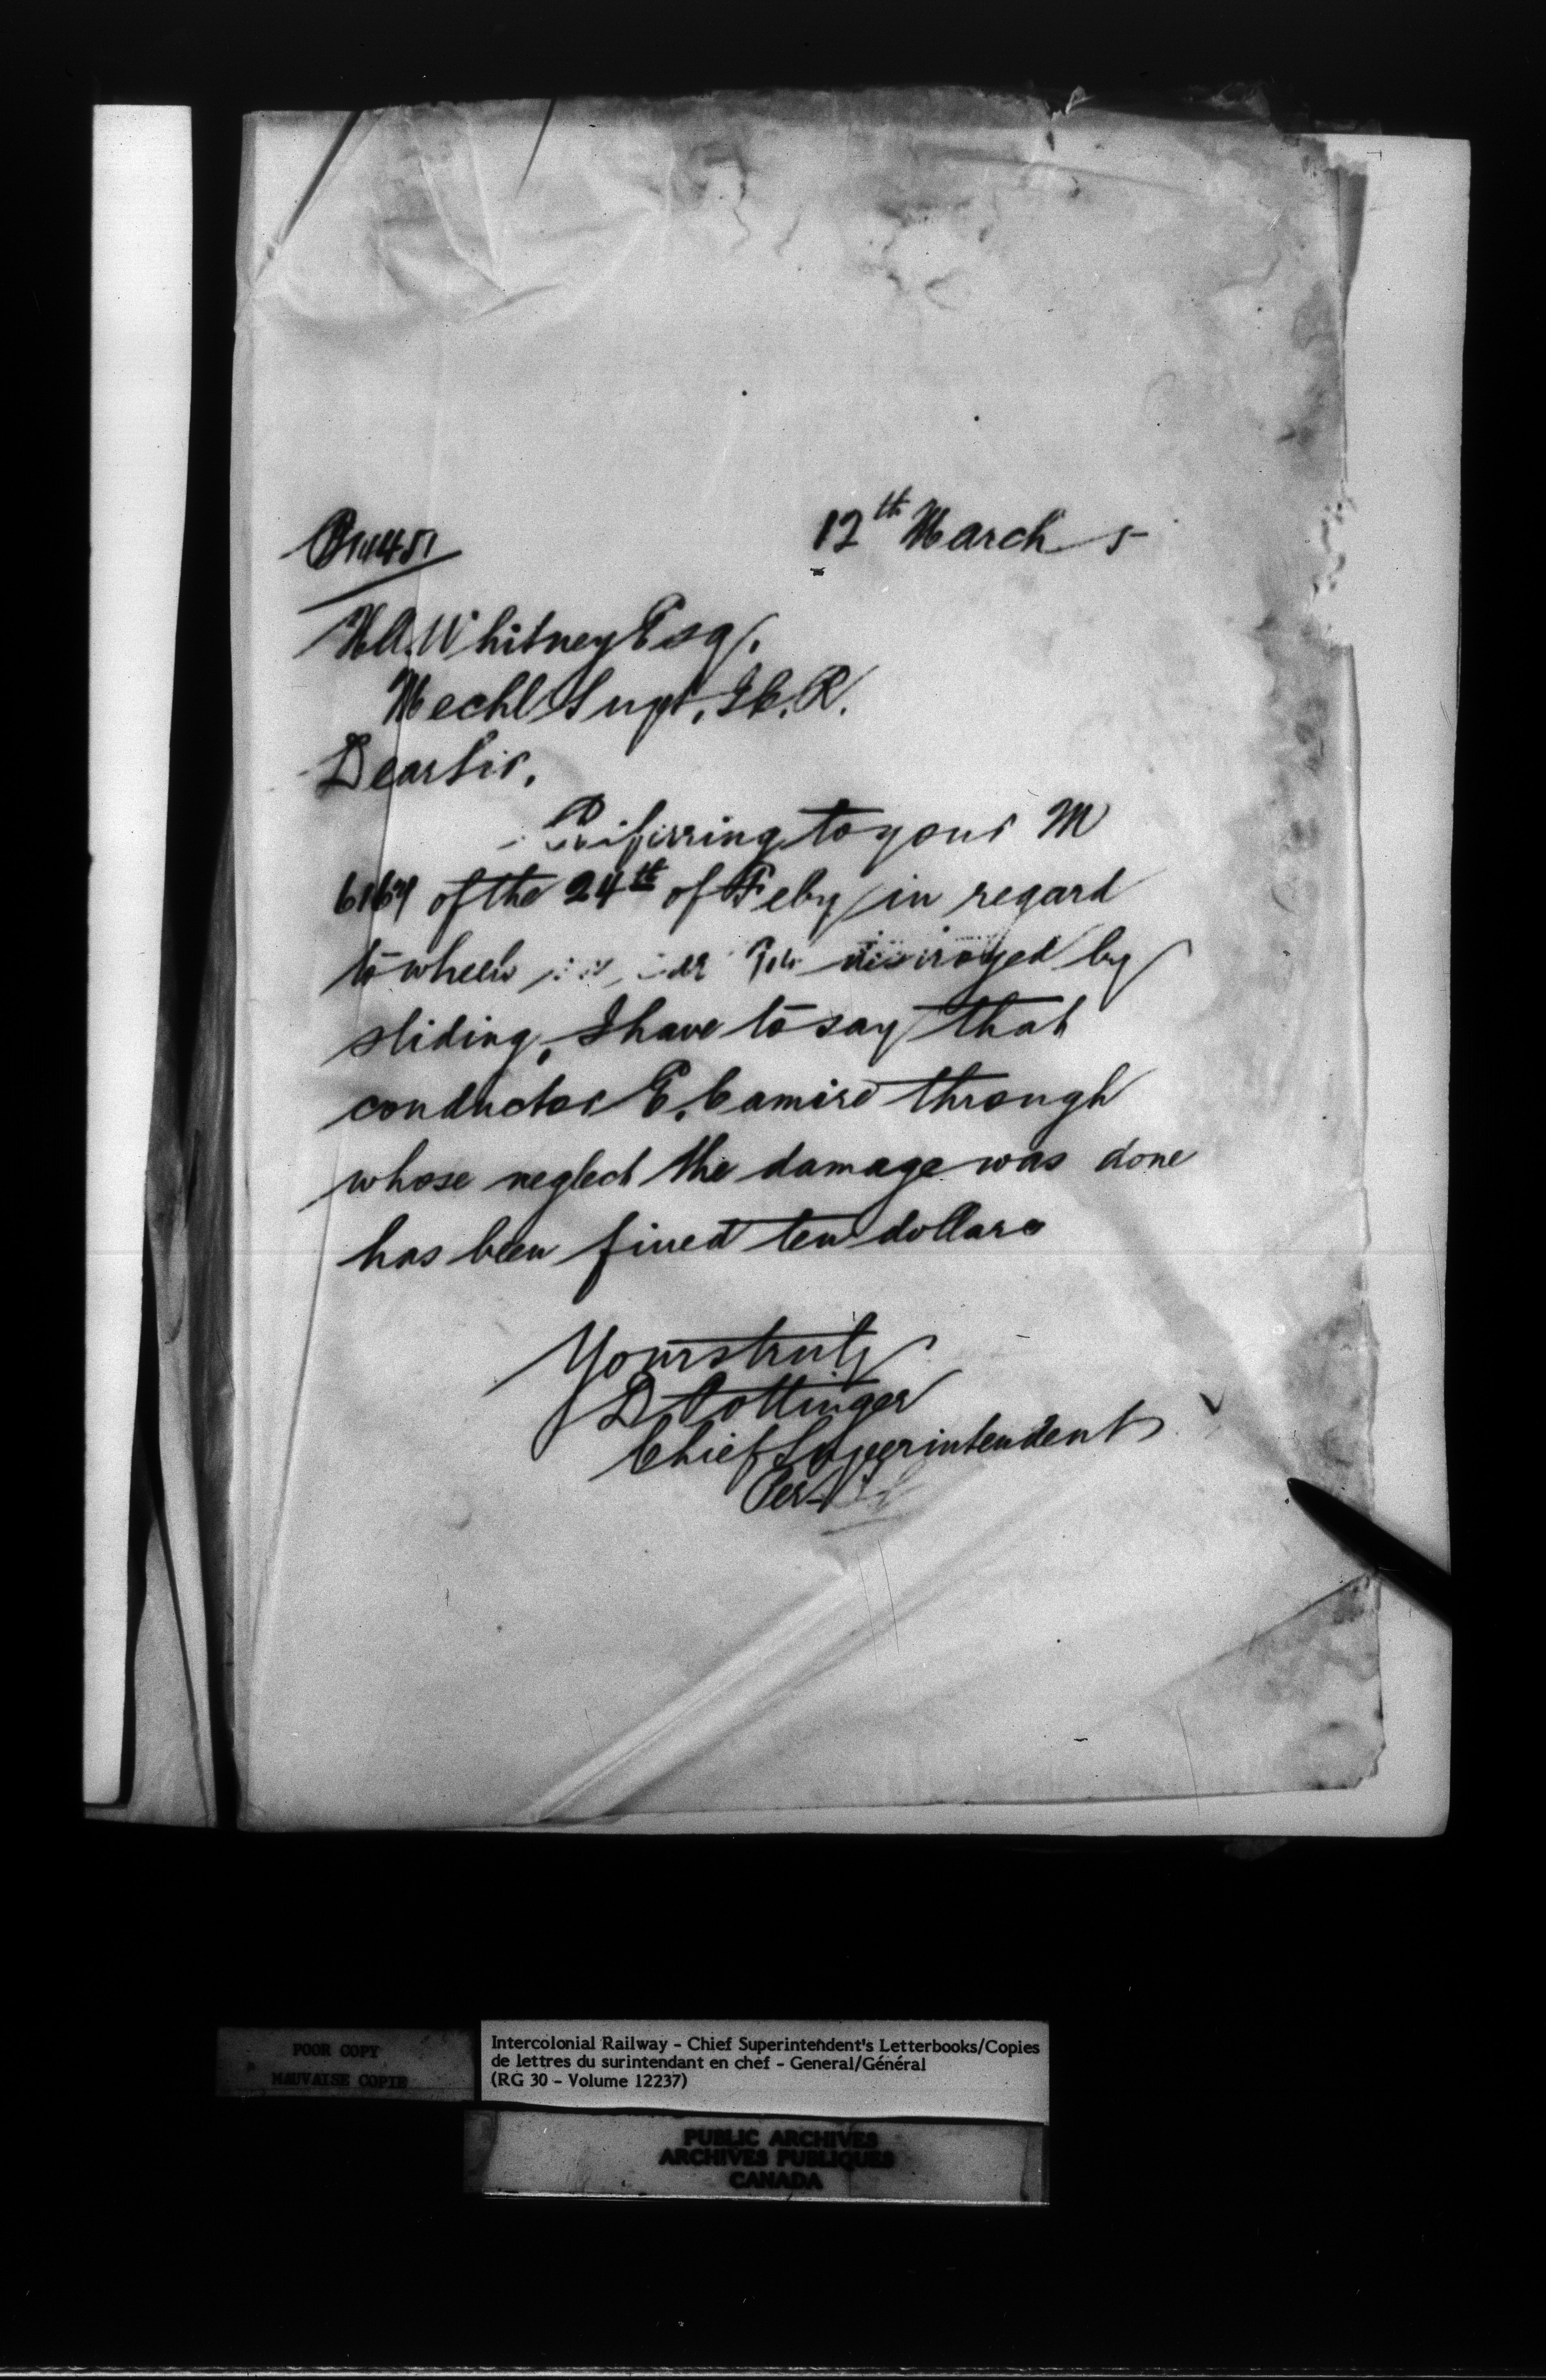 12th March 5
H.A. Whitney Esq.
Mechl Supt, I.C.R.
Dear Sir,
Referring to your M
of the 24th of Feby in regard
to wheels destroyed by
sliding, I have to say that
conductor E. Camire through
whose neglect the damage was done
has been fined ten dollars
Yours truly
D Pottinger
Chief Superintendent
Per
POOR COPY
MAUVAISE COPIE
Intercolonial Railway - Chief Superintendent's Letterbooks/Copies
de lettres du surintendant en chef - General/Général
(RG 30 - Volume 12237)
PUBLIC ARCHIVES
ARCHIVES PUBLIQUES
CANADA